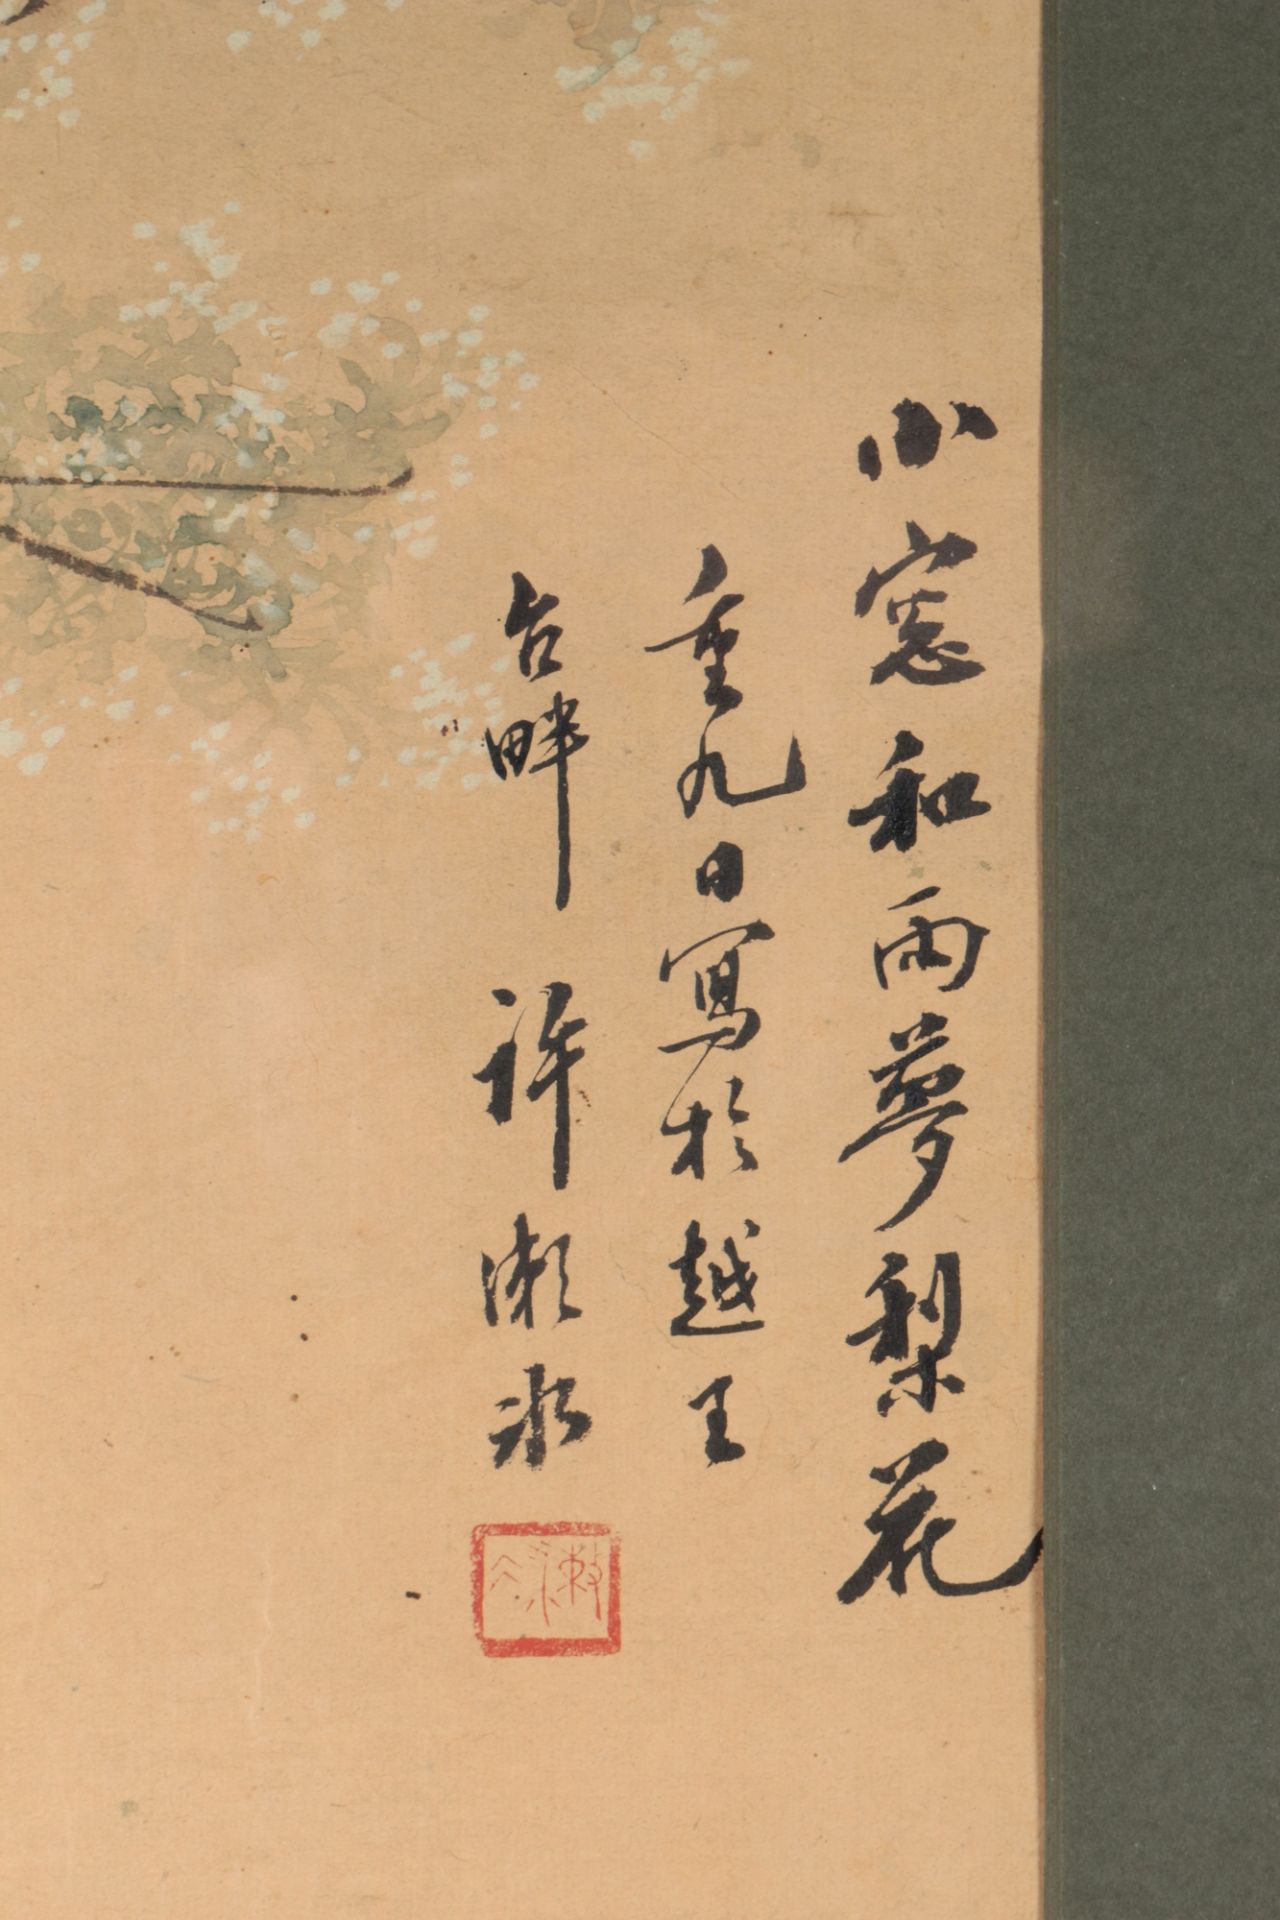 小窓和雨夢梨花
重九日寫於越王
台畔 許漱冰